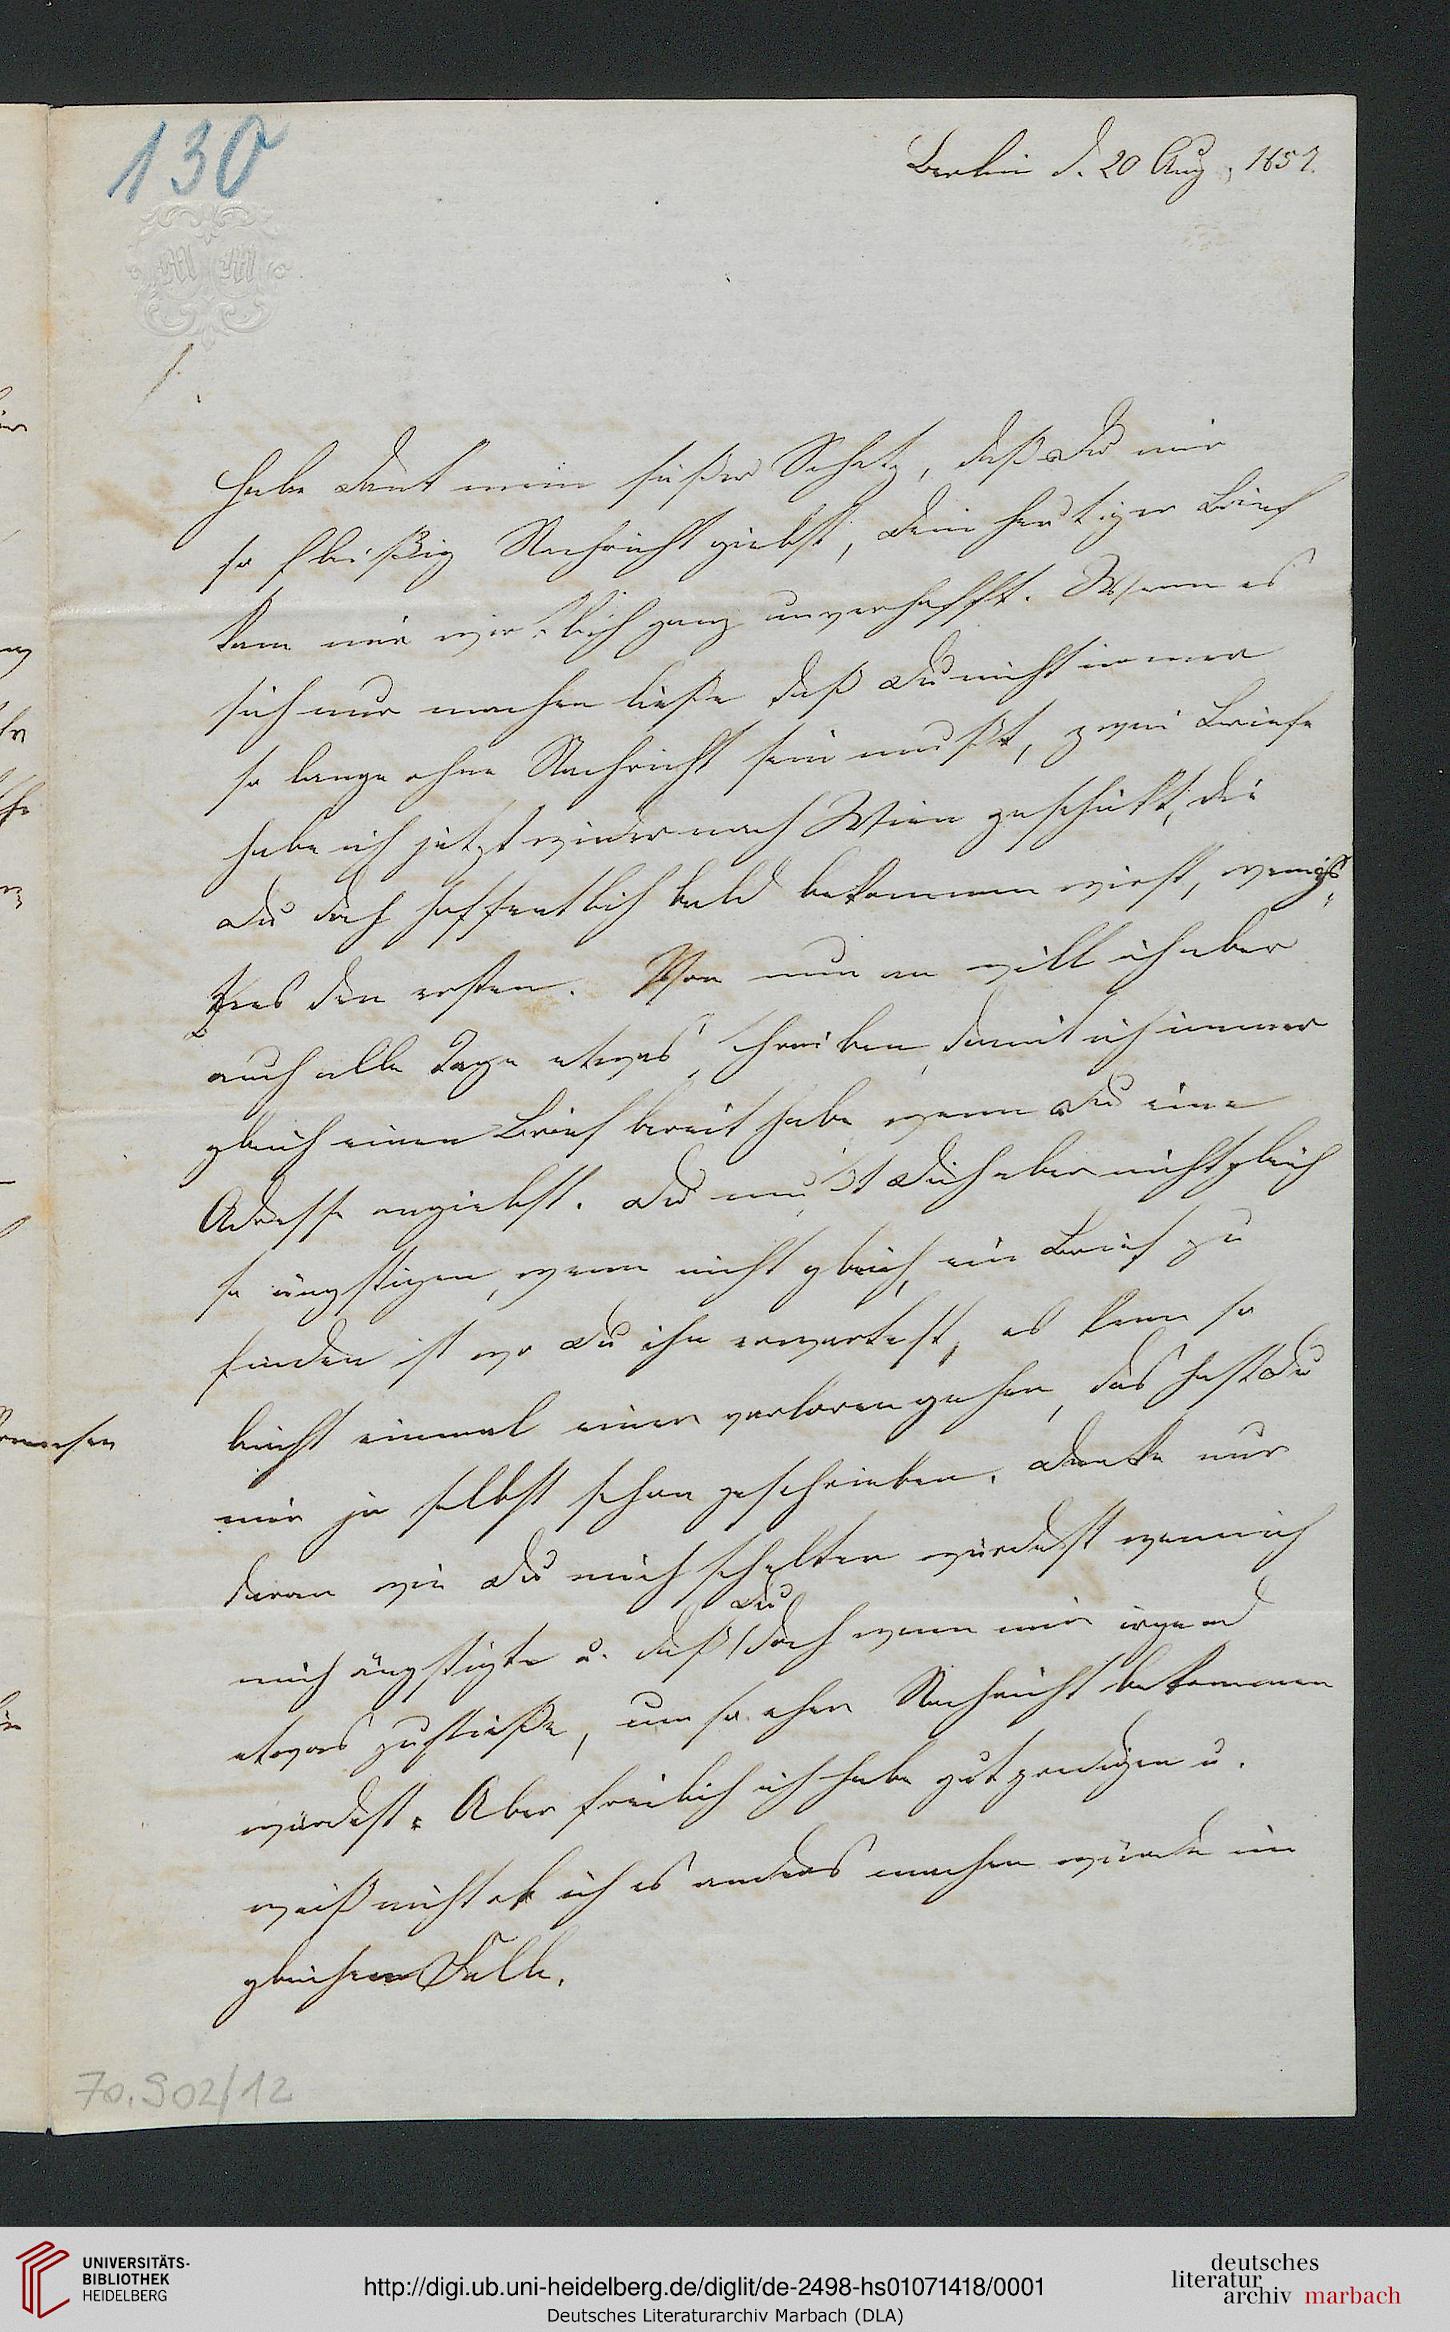 130
Berlin d. 20 Aug. 1857.
Habe Dank mein süßer Schatz, daß Du mir
so fleißig Nachricht giebst, Dein heutiger Brief
kam mir wirklich ganz unverhofft. Wenn es
sich nur machen ließe daß Du nicht immer
so lange ohne Nachricht sein mußt, zwei Briefe
habe ich jetzt wieder nach Wien geschickt, die
Du doch hoffentlich bald bekommen wirst, wenigs-
tens den ersten. Von nun an will ich aber
auch alle Tage etwas schreiben, damit ich immer
gleich einen Brief bereit habe wenn Du eine
Adresse angiebst. Du mußt Dich aber nicht gleich
so ängstigen, wenn nicht gleich ein Brief zu
finden ist wo Du ihn erwartest, es kann so
leicht einmal einer verloren gehen, das hast Du
mir ja selbst schon geschrieben. Denke nur
daran wie Du mich schelten würdest wenn ich
mich ängstigte u. daß Du doch wenn mir irgend
etwas zustieße, um so eher Nachricht bekommen
würdest. Aber freilich ich habe gut predigen u.
weiß nicht ob ich es anders machen würde im
gleichen Falle.
70.902/12
UNIVERSITÄTS-
BIBLIOTHEK
HEIDELBERG
http://digi.ub.uni-heidelberg.de/diglit/de-2498-hs01071418/0001
Deutsches Literaturarchiv Marbach (DLA)
deutsches
literatur
archiv marbach